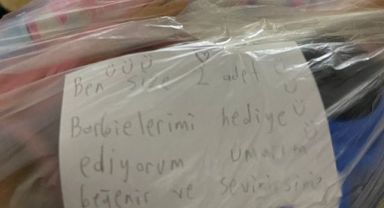 Ben size 2 adet
Barbielerimi hediye
ediyorum umarım
beğenir ve sevinirsiniz